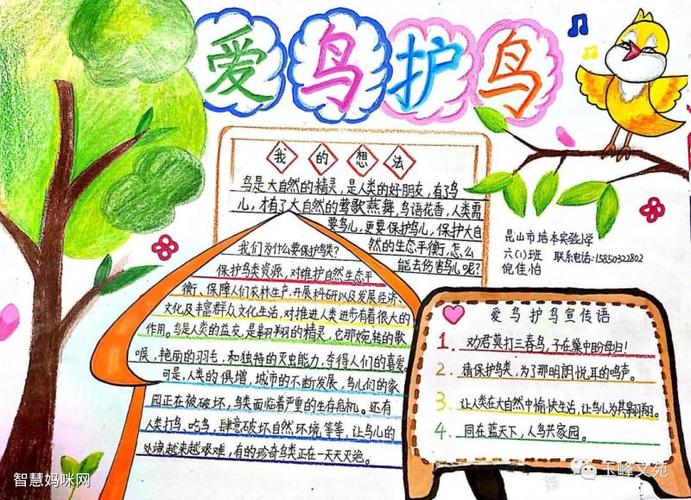 爱鸟护鸟
我的想法
鸟是大自然的精灵，是人类的好朋友，有了鸟
儿，才有了大自然的莺歌燕舞，鸟语花香，人类需
要鸟儿，更要保护鸟儿，保护大自
然的生态平衡，怎么
能去伤害鸟儿呢？
我们为什么要保护鸟类？
保护鸟类资源，对维护自然生态平
衡、保障人们农林生产，开展科研以及发展经济、
文化及丰富群众文化生活，对推进人类进步有着很大的
作用。鸟是人类的益友，是翱翔的精灵，它那婉转的歌
喉，艳丽的羽毛，和独特的灭虫能力，夺得人们的喜爱。
可是，人类的俱增，城市的不断发展，鸟儿们的家
园正在被破坏，鸟类面临着严重的生存危机。还有
人类打鸟、吃鸟，肆意破坏自然环境等等，让鸟儿的
处境越来越艰难，有的珍奇鸟类正在一天天灭绝。
昆山市培本实验小学
六(1)班 联系电话:15850322802
倪佳怡
爱鸟护鸟宣传语
1. 劝君莫打三春鸟，子在巢中盼母归！
2. 请保护鸟类，为了那明朗悦耳的鸣声。
3. 让人类在大自然中愉快生活，让鸟儿为其翱翔。
4. 同在蓝天下，人鸟共家园。
智慧妈咪网
玉峰文苑